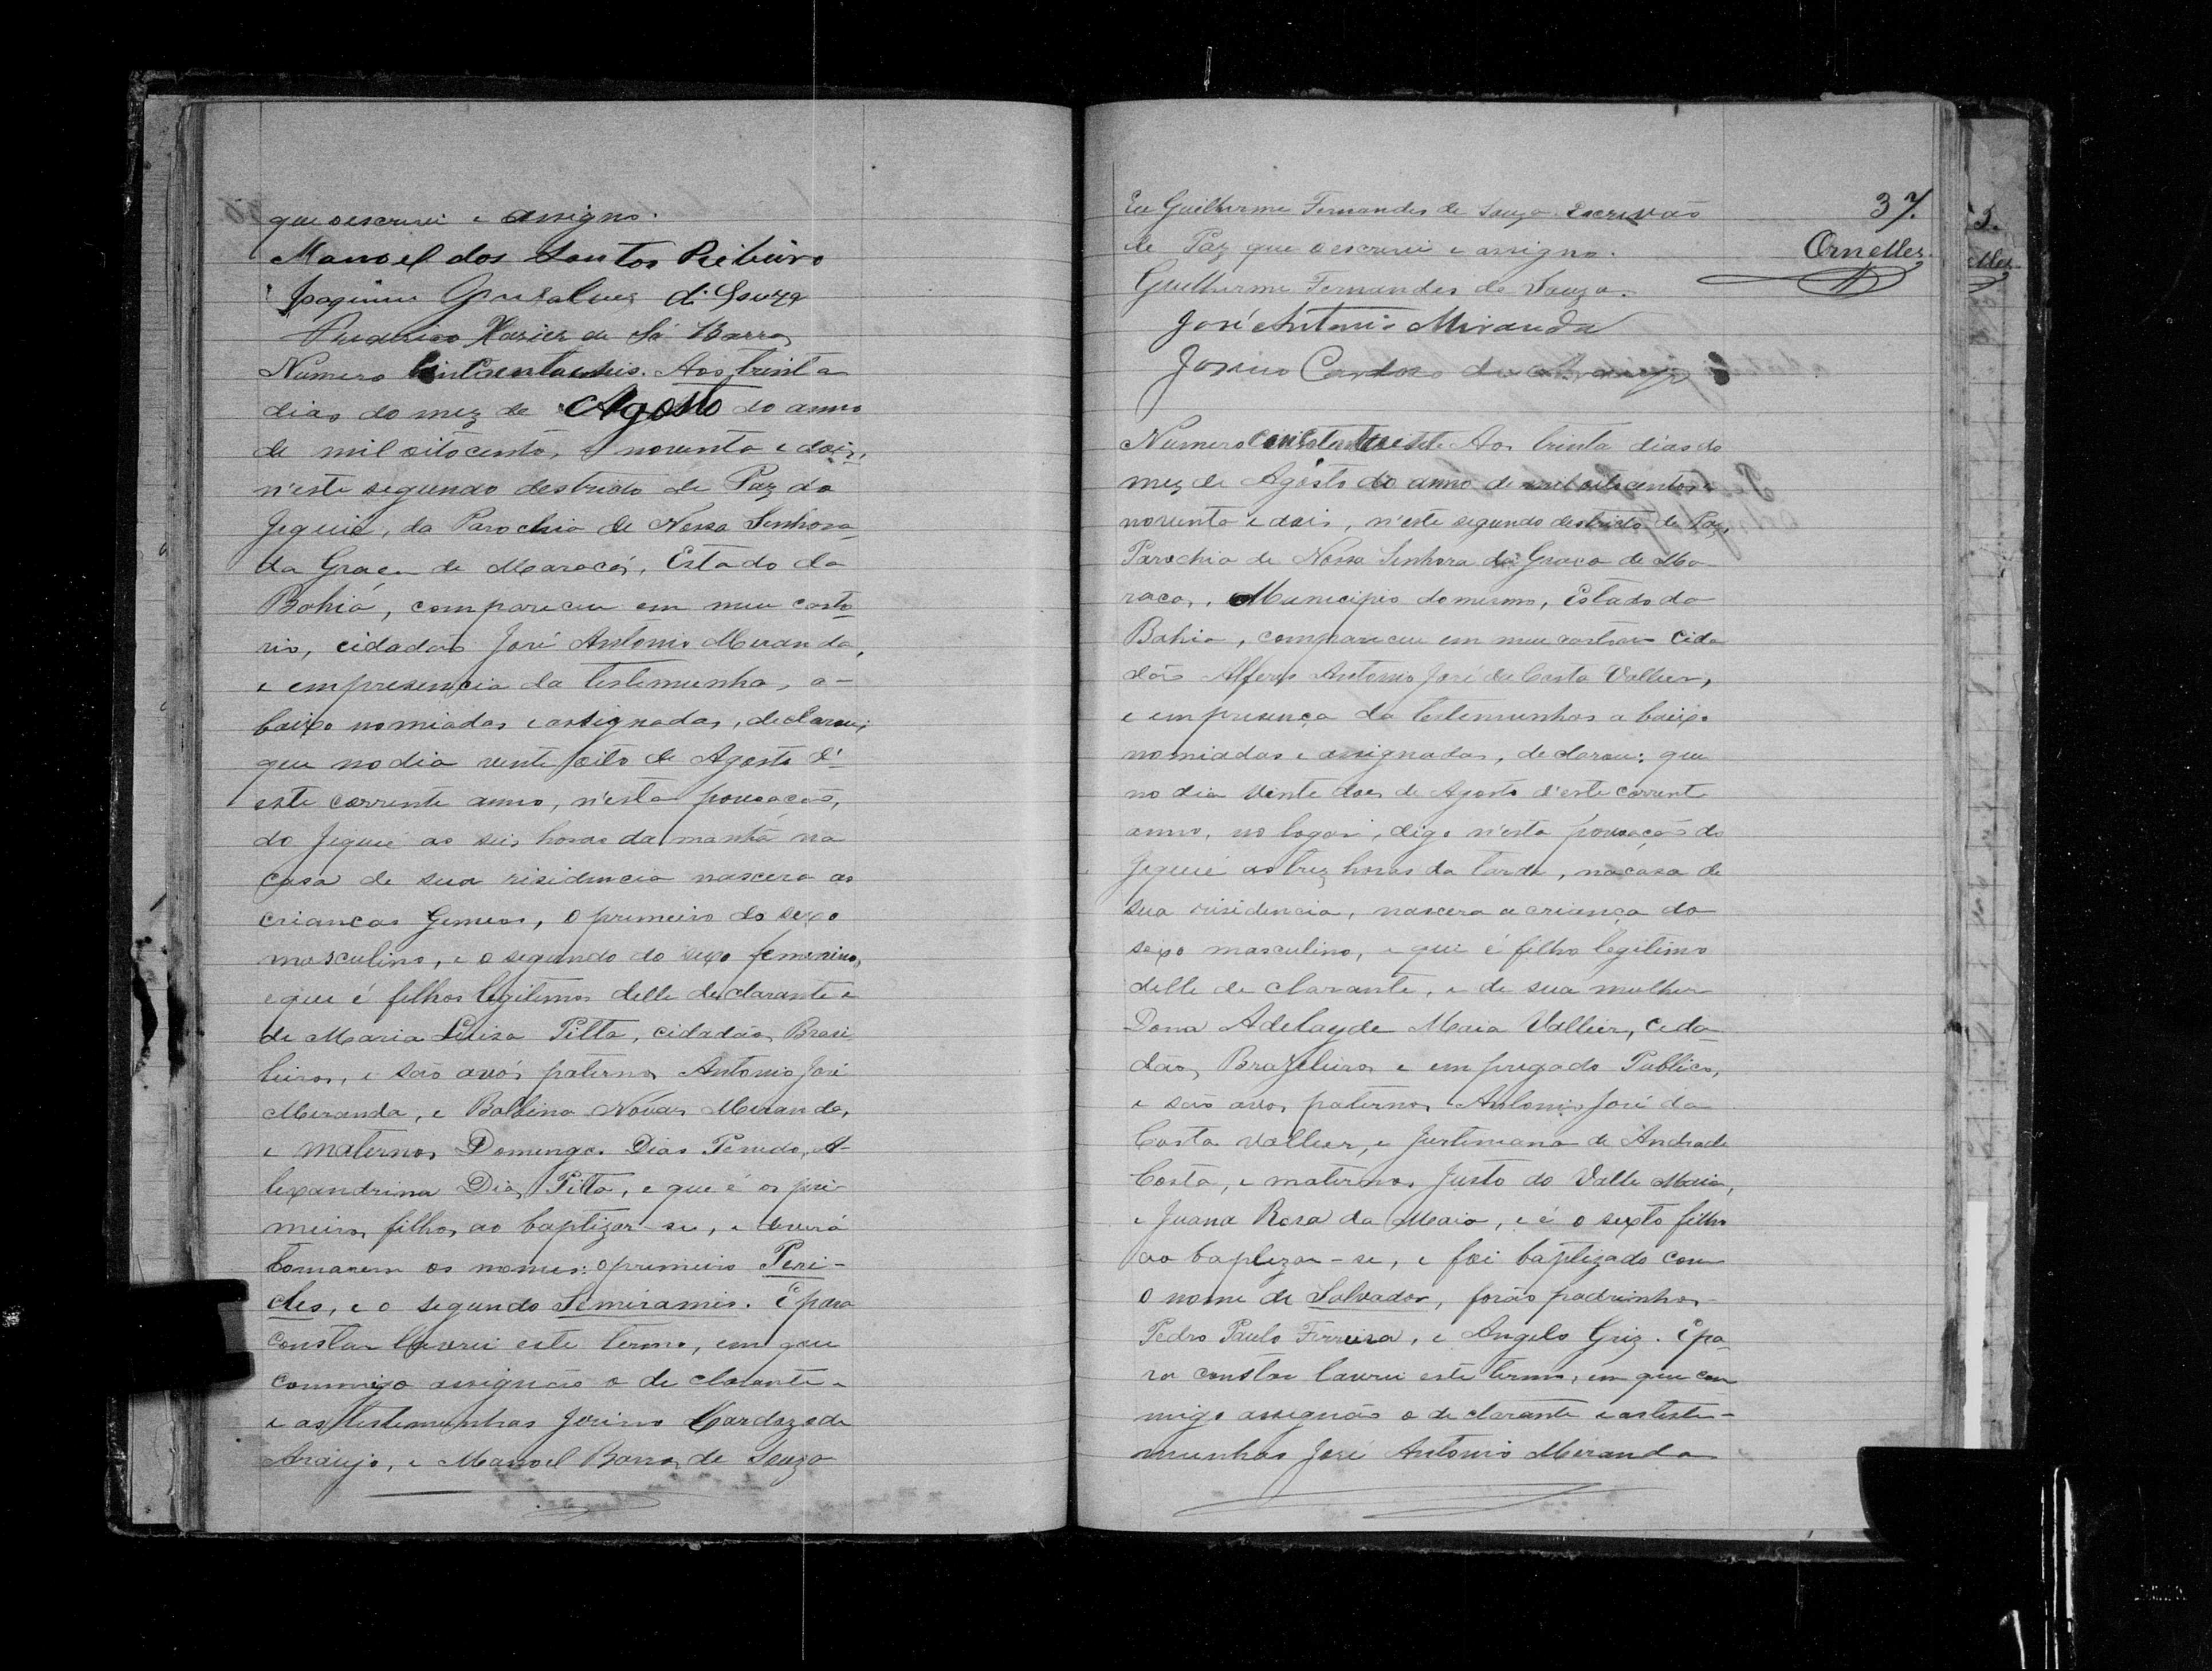 que o escrevi e assigno.
Manoel dos Santos Ribeiro
Joaquim Gonsalves di Souza
Frederico Xavier de Sá Barros
Numero Aos trinta
dias do mez de Agosto do anno
de mil oitocentos, e noventa e dois,
n'este segundo destricto de Paz do
Jequié, da Parochia de Nossa Senhora
da Graça de Maracás, Estado da
Bahia, compareceu em meu carto
rio, cidadão José Antonio Miranda,
e em presencia da testemunhas, a-
baixo nomiadas e assignadas, declarou;
que no dia vente oito de Agosto d'
este corrente anno, n'esta povoação,
do Jequié as seis horas da manhã na
casa de sua risidencia nascera as
crianças Gemeas, o primeiro do sexo
masculino, e o segundo do sexo femenino,
e que é filhos legitimos delle declarante e
de Maria Luiza Pitta, cidadãos Brasi
leiros, e são avós paternos Antonio José
Miranda, e Balbina Novaes Miranda,
e maternos Domingos Dias Penedo, A-
lexandrina Dias Pitta, e que é os pri-
meiros filhos ao baptizar-se, e deverá
tomarem os nomes: o primeiro Peri-
cles, e o segundo Semiramis. E para
constar lavrei este termo, em que
commigo assignão o de clarante
e as testemunhas Josino Cardozo de
Araujo, e Manoel Barros de Souza
37.
Ornelles
Eu Guilherme Fernandes de Souza Escrivão
de Paz que o escrevi e assigno.
Guilherme Fernandes de Souza.
José Antonio Miranda
Josino Cardoso de Araujo
Numero Aos trinta dias do
mez de Agosto do anno de mil oitocentos e
noventa e dois, n'este segundo destricto de Paz,
Parochia de Nossa Senhora da Graça de Ma-
racas, Municipio do mesmo, Estado da
Bahia, compareceu em meu cartorio cida
dão Alferes Antonio José da Costa Vallier,
e em presença da testemunhas a baixo
nomiadas e assignadas, declarou: que
no dia vente dois de Agosto d'este corrente
anno, no logar, digo n'esta povoação do
Jequié as trez horas da tarde, na casa de
sua risidencia, nascera a criança do
sexo masculino, e que é filho legitimo
delle de clarante, e de sua mulher
Dona Adelayde Maia Vallier, cida-
dãos Brazileiros e empregado Publico,
e são avos paternos Antonio José da
Costa Vallier, e Justiniana de Andrade
Costa, e maternos Justo do Valle Maia,
e Juana Rosa da Maia, e é o sexto filho
ao baptizar-se, e foi baptizado com
o nome de Salvador, forão padrinhos
Pedro Paulo Ferreira, e Angelo Griz. E pa-
ra constar lavrei este termo, em que com
migo assignão o de clarante e as teste-
munhas José Antonio Miranda